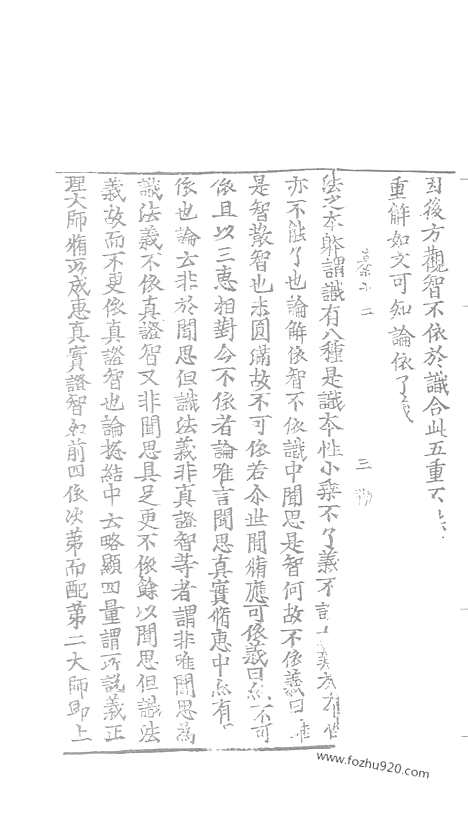 因後方觀智不依於識合此五重
重解如文可知論依了義
三
法之本躰謂識有八種是識本性小乘不了義不
亦不能了也論解依智不依識中聞思是智何故不依義曰
是智散智也未圓滿故不可依若尒世間脩應可依義曰然不可
依且以三惠相對今不依者論唯言聞思真實脩惠中
依也論云非於聞思但識法義非真證智等者謂非唯聞思為
識法義不依真證智又非聞思具足更不依餘以聞思但識法
義故而不更依真證智也論捴結中云略顯四量謂所說義正
理大師脩所成惠真實證智如前四依次苐而配苐二大師即上
www.fozhu920.com